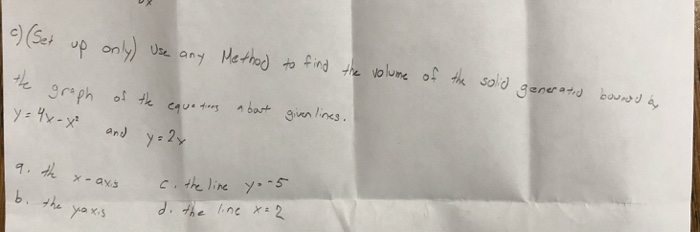 c) (Set up only) Use any Method to find the volume of the solid generated bounded by
the graph of the equations about given lines.
y = 4x - x² and y = 2x
a. the x-axis c. the line y = -5
b. the y axis d. the line x = 2